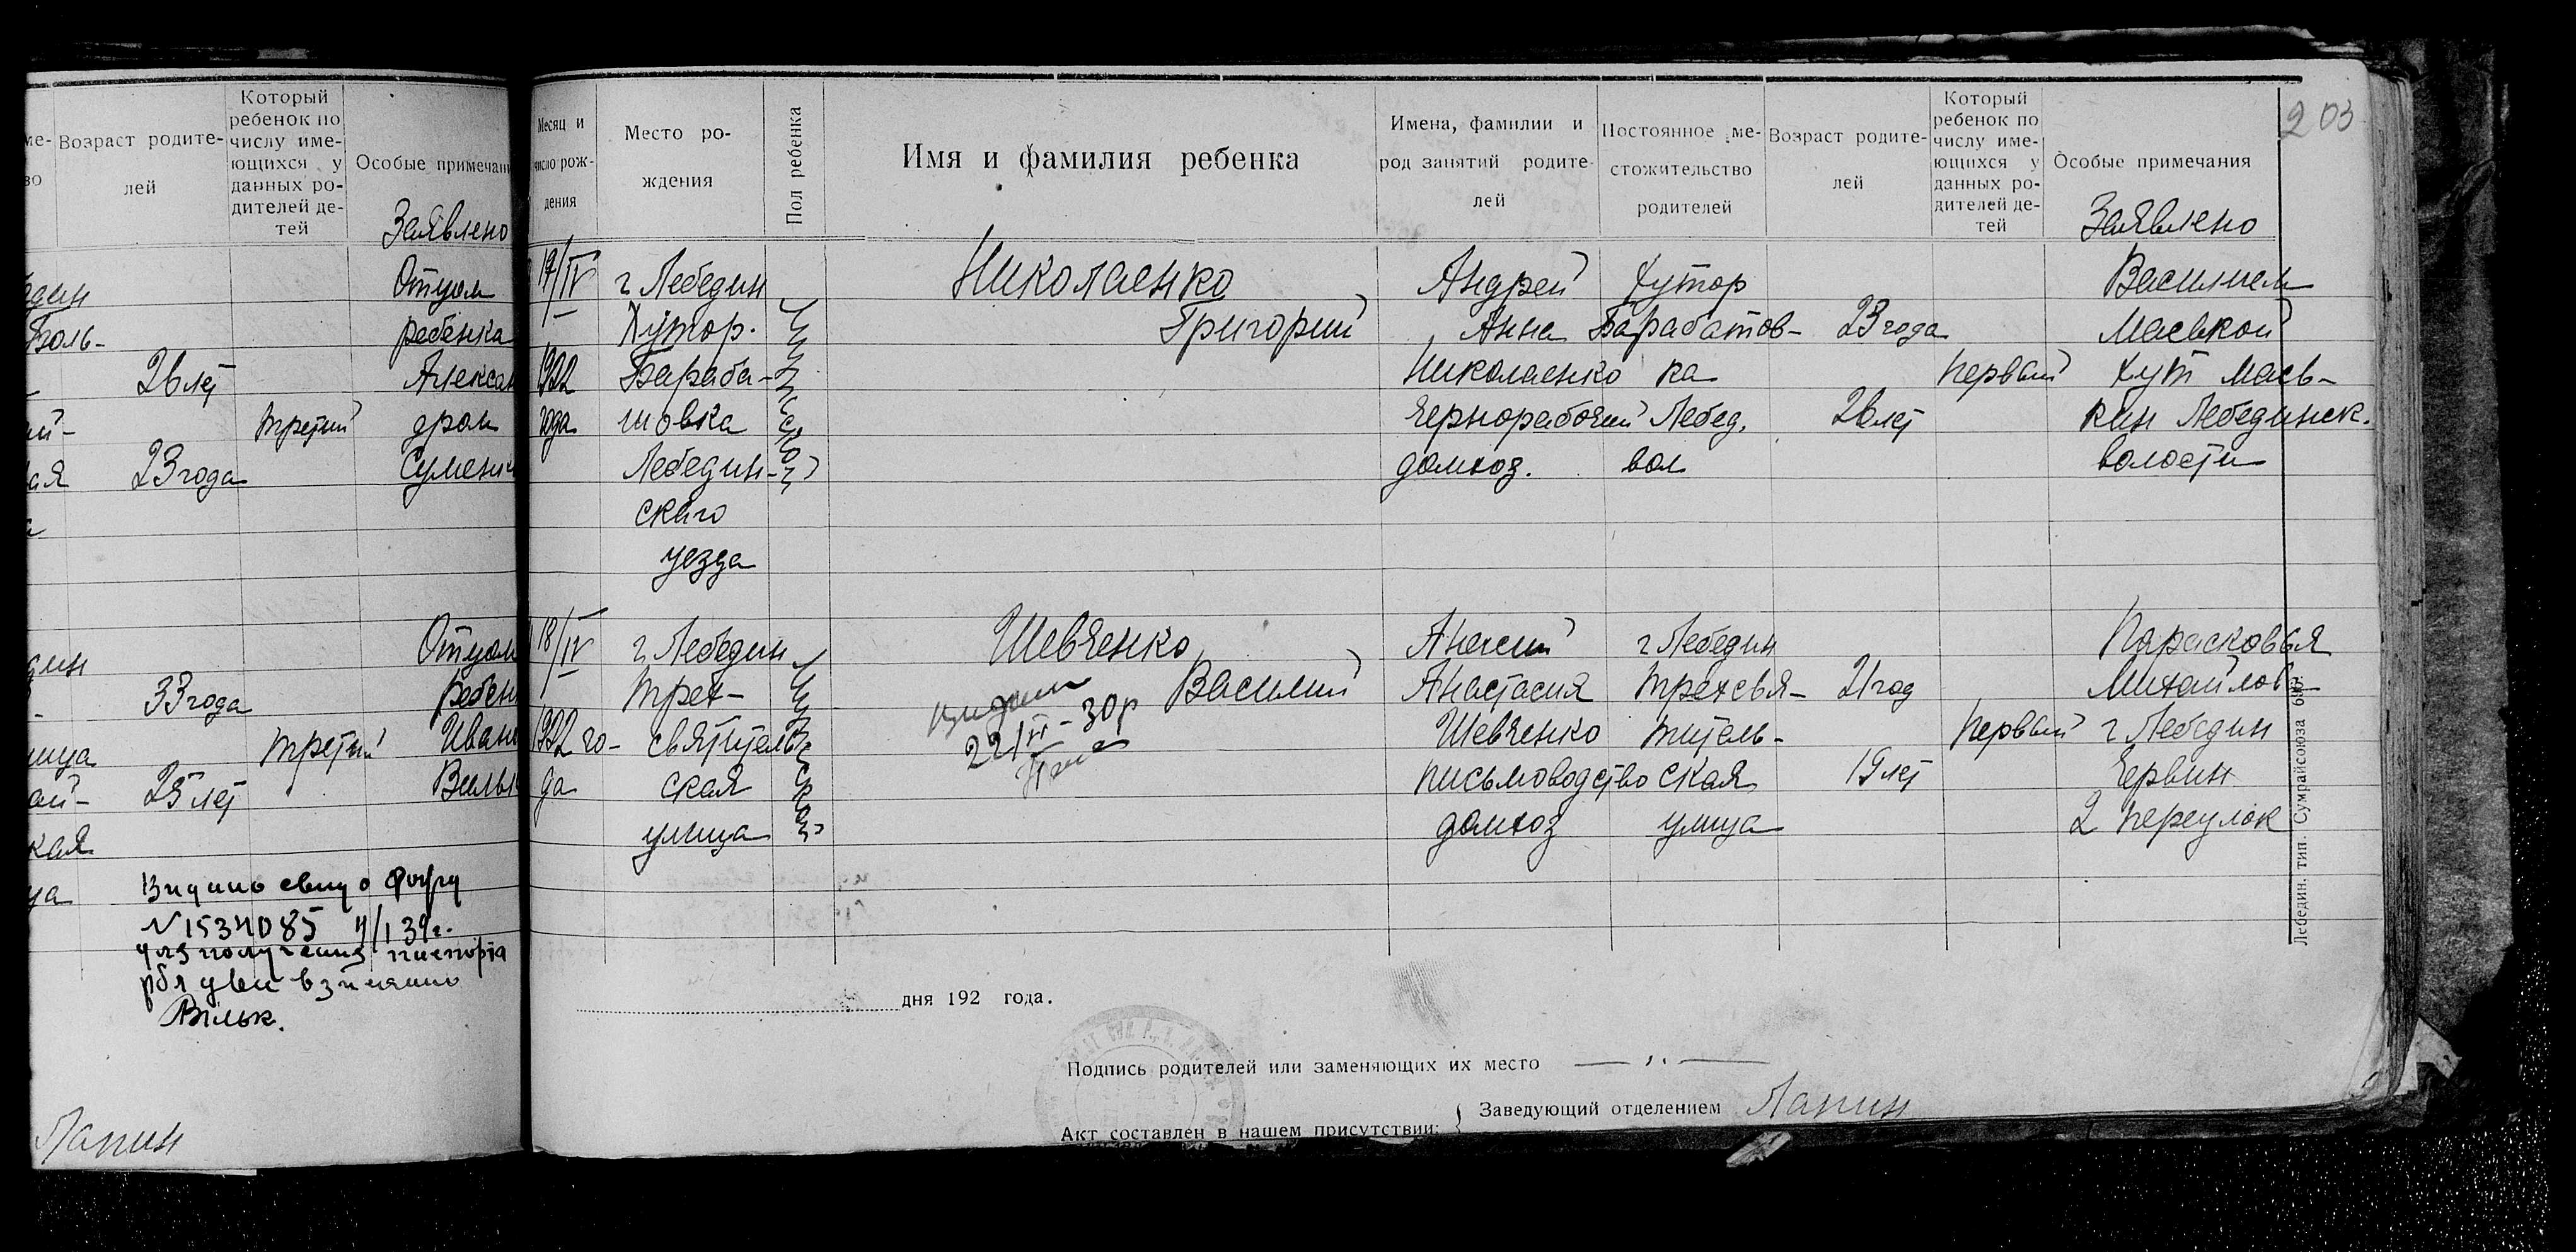 Возраст родите-
лей
Который
ребенок по
числу име-
ющихся у
данных ро-
дителей де-
тей
Особые примечани
Заявлено
Отцом
ребенка
26 лет
Алексан
третий
дром
23 года
Отцом
33 года
третий
Иван
25 лет
кая
N 1534085
для получения паспорта
Вільк.
Лапин
Месяц и
число рож-
дения
Место ро-
ждения
Пол ребенка
Имя и фамилия ребенка
Имена, фамилии и
род занятий родите-
лей
Постоянное ме-
стожительство
родителей
Возраст родите-
лей
Который
ребенок по
числу име-
ющихся у
данных ро-
дителей де-
тей
Особые примечания
Заявлено
203
/IV
1922
года
г Лебедин
Хутор.
Бараба-
шовка
Лебедин-
скаго
уезда
Мужской
Николаенко
Григорий
Андрей
Анна
Николаенко
чернорабочий
домхоз.
Хутор
Барабатов-
ка
Лебед.
вол
23 года
26 лет
первый
Василием
Маевкой
хут Маев-
кин Лебединск.
волости
18/IV
1922 го-
да
г Лебедин
трех-
святитель
ская
улица
Мужской
Шевченко
Василий
22/VI - 30р
Алексей
Анастасия
Шевченко
письмоводство
домхоз
г Лебедин
трехсвя-
титель-
ская
улица
21 год
19 лет
первый
Парасковья
Михайлов
г Лебедин
Червин
2 переулок
дня 192 года.
Подпись родителей или заменяющих их место
Заведующий отделением Лапин
Акт составлен в нашем присутствии:
Лебедин. тип. Сумрайсоюза